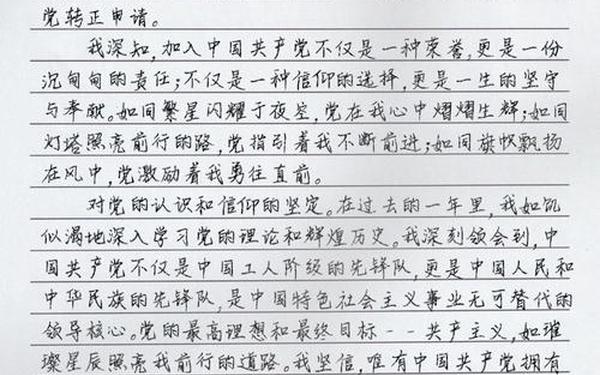 党转正申请。
我深知,加入中国共产党不仅是一种荣誉,更是一份
沉甸甸的责任;不仅是一种信仰的选择,更是一生的坚守
与奉献。如同繁星闪耀于夜空,党在我心中熠熠生辉;如同
灯塔照亮前行的路,党指引着我不断前进;如同旗帜飘扬
在风中,党激励着我勇往直前。
对党的认识和信仰的坚定。在过去的一年里,我如饥
似渴地深入学习党的理论和辉煌历史。我深刻领会到,中
国共产党不仅是中国工人阶级的先锋队,更是中国人民和
中华民族的先锋队,是中国特色社会主义事业无可替代的
领导核心。党的最高理想和最终目标--共产主义,如璀
璨星辰照亮我前行的道路。我坚信,唯有中国共产党拥有